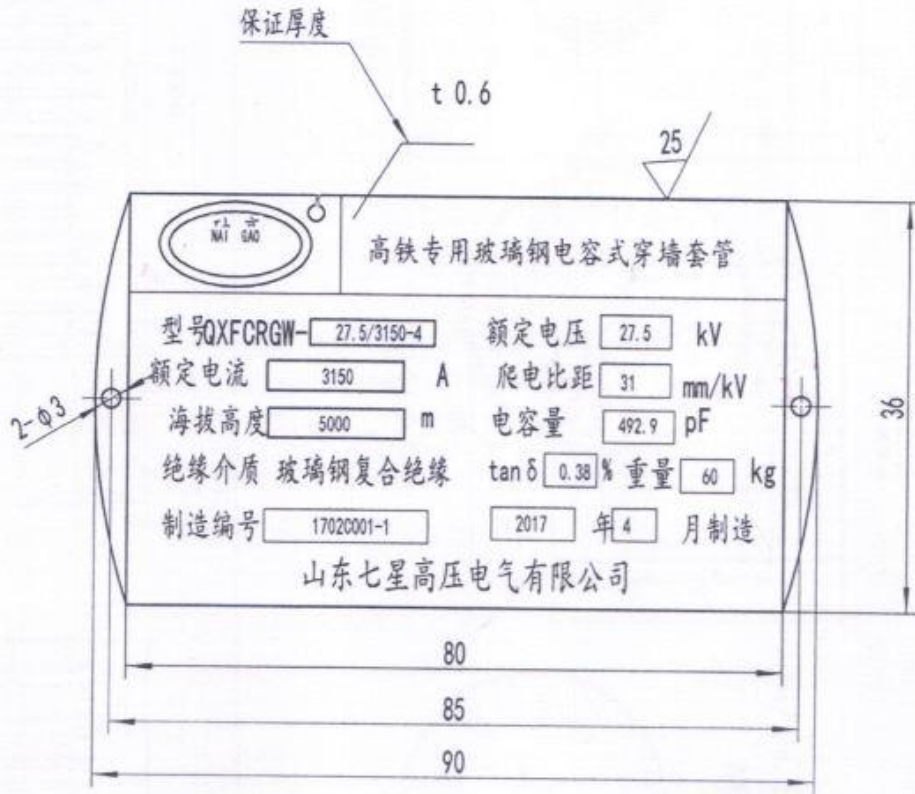 保证厚度
t 0.6
25
NAI GAO
高铁专用玻璃钢电容式穿墙套管
型号QXFCRGW- 27.5/3150-4 额定电压 27.5 kV
额定电流 3150 A 爬电比距 31 mm/kV
海拔高度 5000 m 电容量 492.9 pF
绝缘介质 玻璃钢复合绝缘 tanδ 0.38 % 重量 60 kg
制造编号 1702C001-1 2017 年 4 月制造
山东七星高压电气有限公司
2-Φ3
36
80
85
90